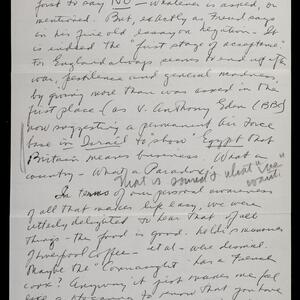 first to say NO — whatever is asked, or
mentioned. But, exactly as Freud says
in his fine old essay on Negation. It
is indeed the "first stage of acceptance."
For England always seems to end up with
war, pestilence and general madness,
by giving more than was asked in the
first place (as V. Anthony Eden (BBC)
now suggesting a permanent Air Force
base in Israel to "show" Egypt that
Britain means business. What a
country — What a Paradox.
that is what "we" want.
In terms of our personal awareness
of all that makes life easy, we were
utterly delighted to hear that of all
things — the food is good. he, his memories
of Liverpool Coffee — et al — were dismal.
Maybe the "Connaught" has a French
cook? Anyway it just makes me feel
like to know that you have